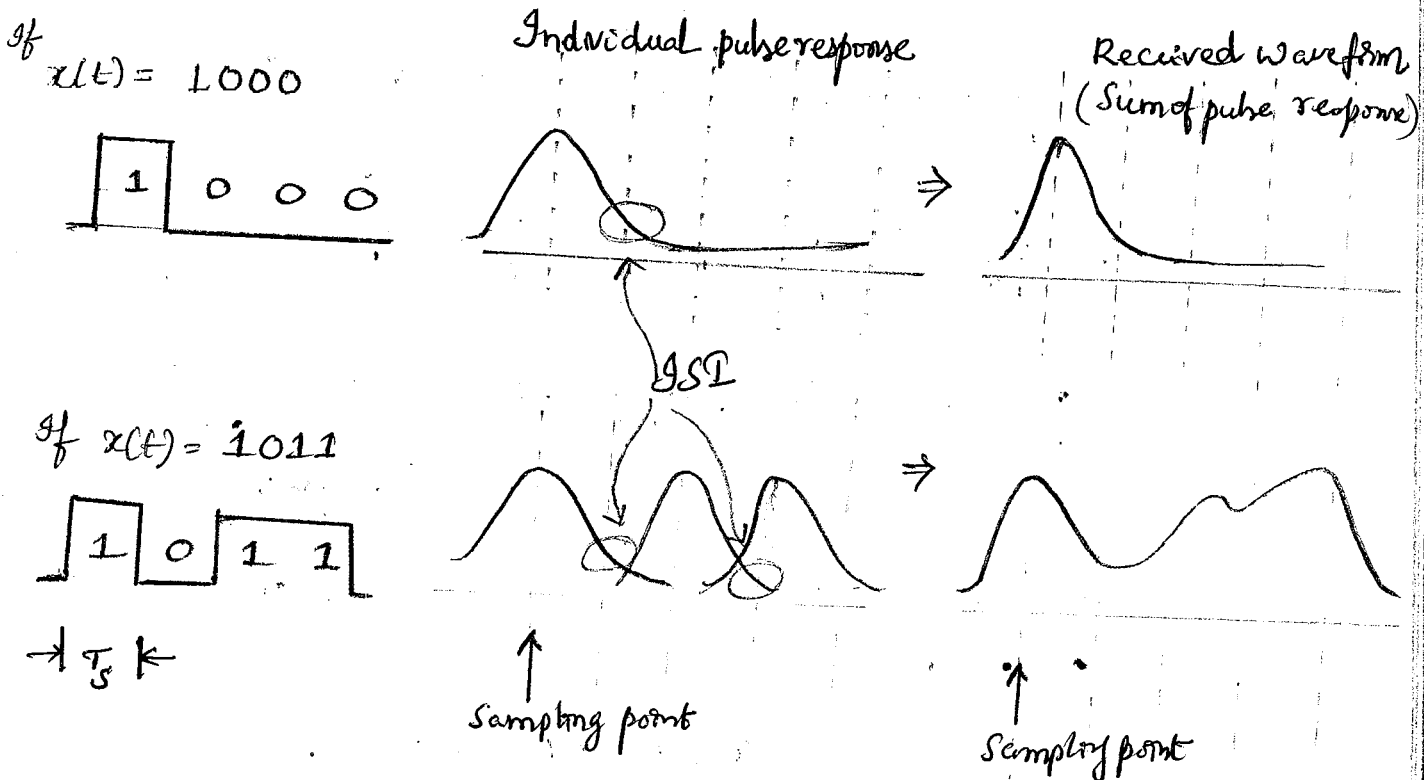 If
x(t) = 1000
Individual pulse response
Received waveform
(Sum of pulse response)
1 0 0 0
⇒
ISI
If x(t) = 1011
1 0 1 1
⇒
Ts
Sampling point
Sampling point